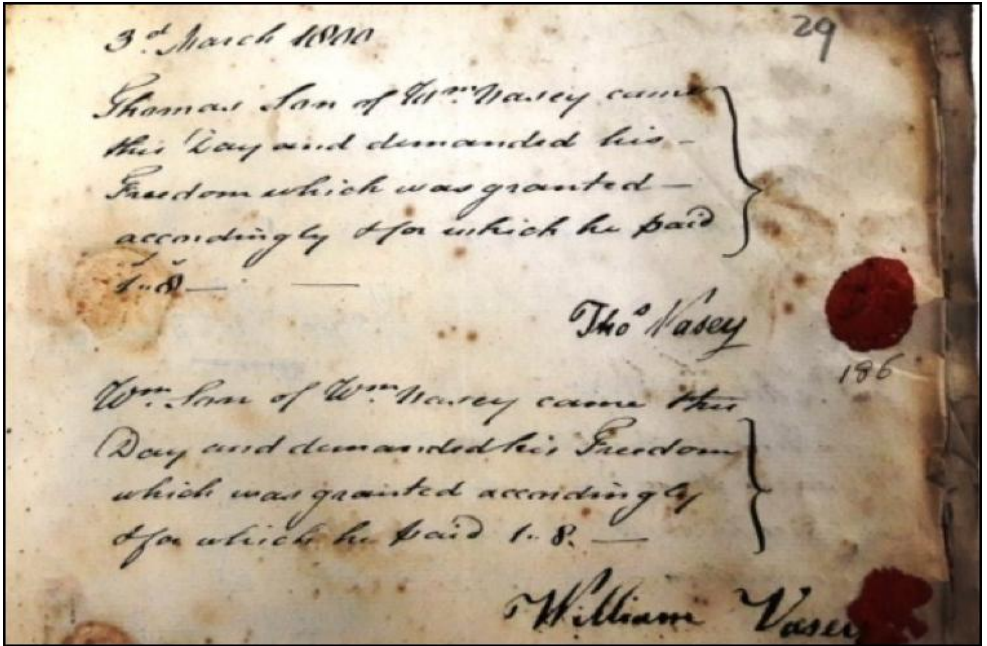 29
3.d March 1800
Thomas Son of Wm. Vasey came
this Day and demanded his -
Freedom which was granted -
accordingly & for which he paid
1..8 — —
Thos Vasey
186
Wm. Son of Wm. Vasey came this
Day and demanded his Freedom
which was granted accordingly
& for which he paid 1..8. —
William Vasey